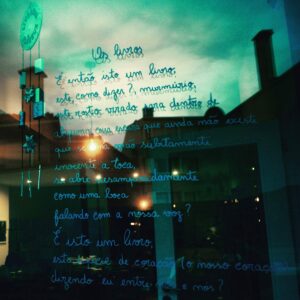 Os livros
É então isto um livro,
este, como dizer?, murmúrio,
este rosto virado para dentro de
alguma coisa escura que ainda não existe
que se uma mão subitamente
inocente a toca,
se abre desamparadamente
como uma boca
falando com a nossa voz?
É isto um livro,
esta espécie de coração (o nosso coração)
dizendo eu entre e nós?